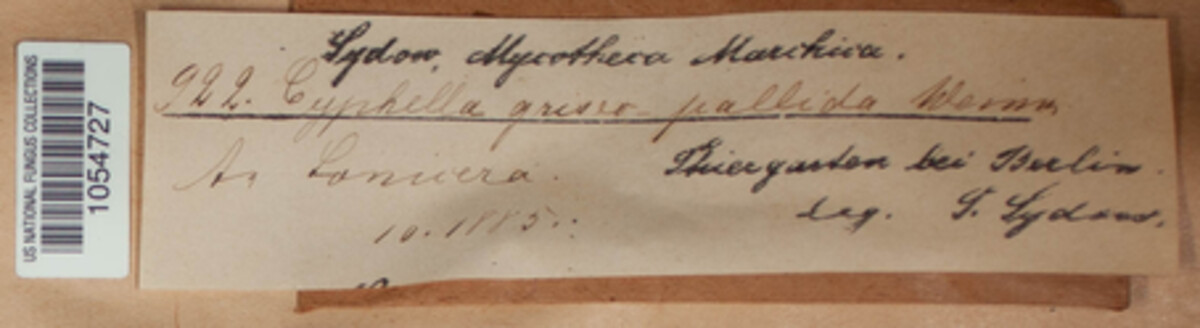 US NATIONAL FUNGUS COLLECTIONS
1054727
Sydow, Mycotheca Marchica.
922. Cyphella griseo-pallida Weinm
An Lonicera.
Thiergarten bei Berlin.
10.1885.
leg. P. Sydow.